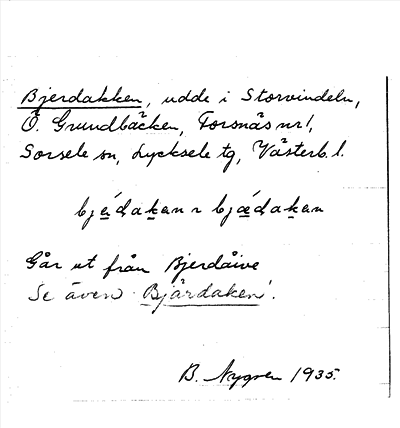 Bjerdakken, udde i Storvindeln,
Ö. Grundbäcken, Forsnäs nr 1,
Sorsele sn, Lycksele tg, Västerb. l.
bjɛ́dakan ~ bjǽdakan
Går ut från Bjerdåive
Se även Bjärdaken.
B. Nygren 1935.